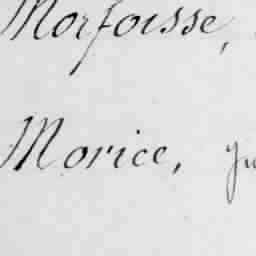 Morfoisse,
Morice,